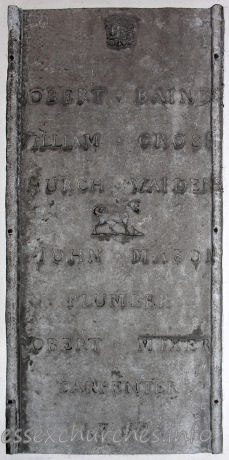 OBERT · BAIND
ILLIAM · CROSS
HURCH · WARDEN
JOHN MASON
PLUMBER
OBERT MIXER
CARPENTER
essexchurches.info